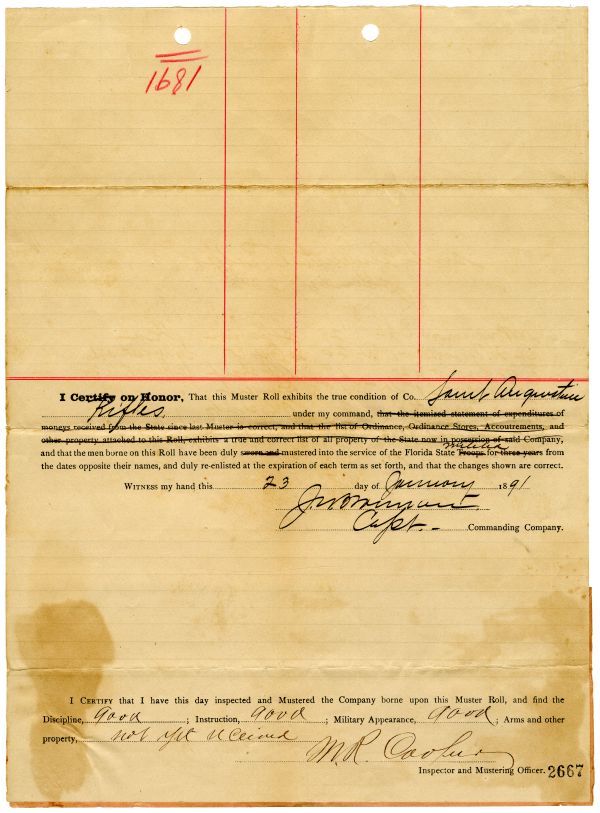 1681
I Certify on Honor, That this Muster Roll exhibits the true condition of Co. Saint Augustine
Rifles under my command, that the itemised statement of expenditures of
moneys received from the State since last Muster is correct, and that the list of Ordinance, Ordinance Stores, Accoutrements, and
other property attached to this Roll, exhibits a true and correct list of all property of the State now in possession of said Company,
militia
and that the men borne on this Roll have been duly sworn and mustered into the service of the Florida State Troops for three years from
the dates opposite their names, and duly re-enlisted at the expiration of each term as set forth, and that the changes shown are correct.
WITNESS my hand this 23 day of January 1891
Capt. Commanding Company.
I CERTIFY that I have this day inspected and Mustered the Company borne upon this Muster Roll, and find the
Discipline, good ; Instruction, good ; Military Appearance, good ; Arms and other
property, not yet received
M. R.
Inspector and Mustering Officer. 2667